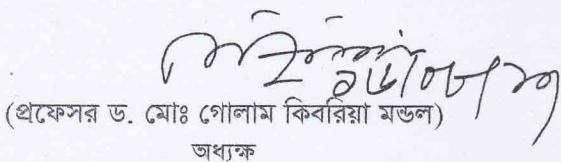 (প্রফেসর ড. মোঃ গোলাম কিবরিয়া মন্ডল)
অধ্যক্ষ